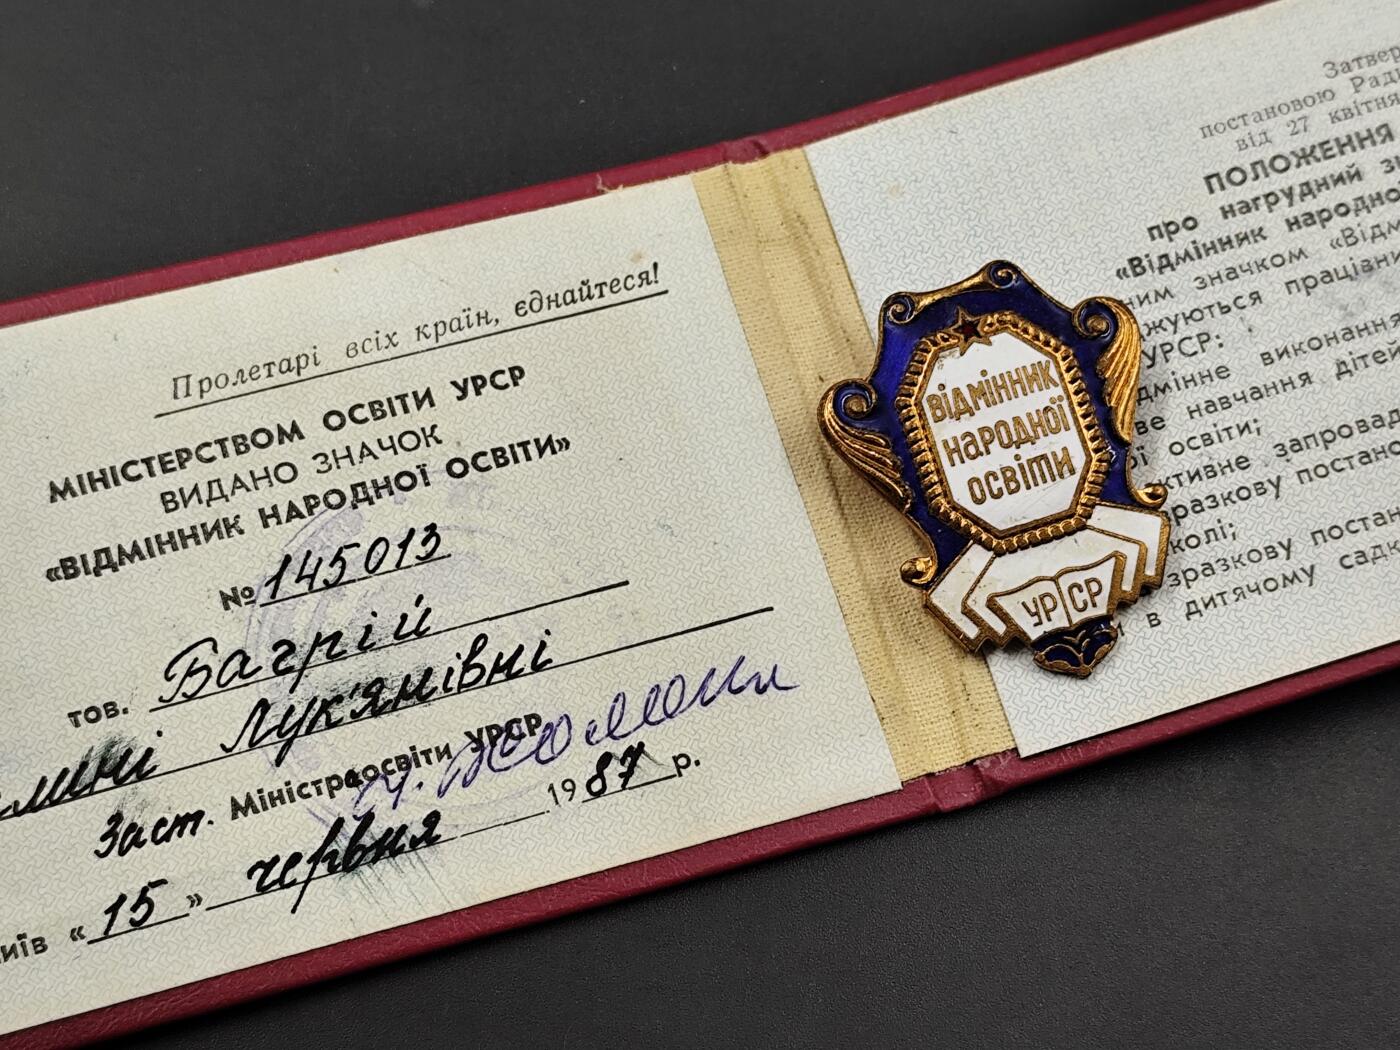 Пролетарі всіх країн, єднайтеся!
МІНІСТЕРСТВОМ ОСВІТИ УРСР
ВИДАНО ЗНАЧОК
«ВІДМІННИК НАРОДНОЇ ОСВІТИ»
№ 145013
тов. Багрій
Лук'янівні
Заст. Міністра освіти УРСР
«15» червня 1987 р.
Затвер
постановою Раді
від 27 квітня
ПОЛОЖЕННЯ
про нагрудний зн
«Відмінник народно
ним значком «Відм
жуються працівни
УРСР:
дмінне виконання
ве навчання дітей
ї освіти;
ктивне запровад
разкову постано
колі;
зразкову постан
и в дитячому садк
ВІДМІННИК
НАРОДНОЇ
ОСВІТИ
УРСР